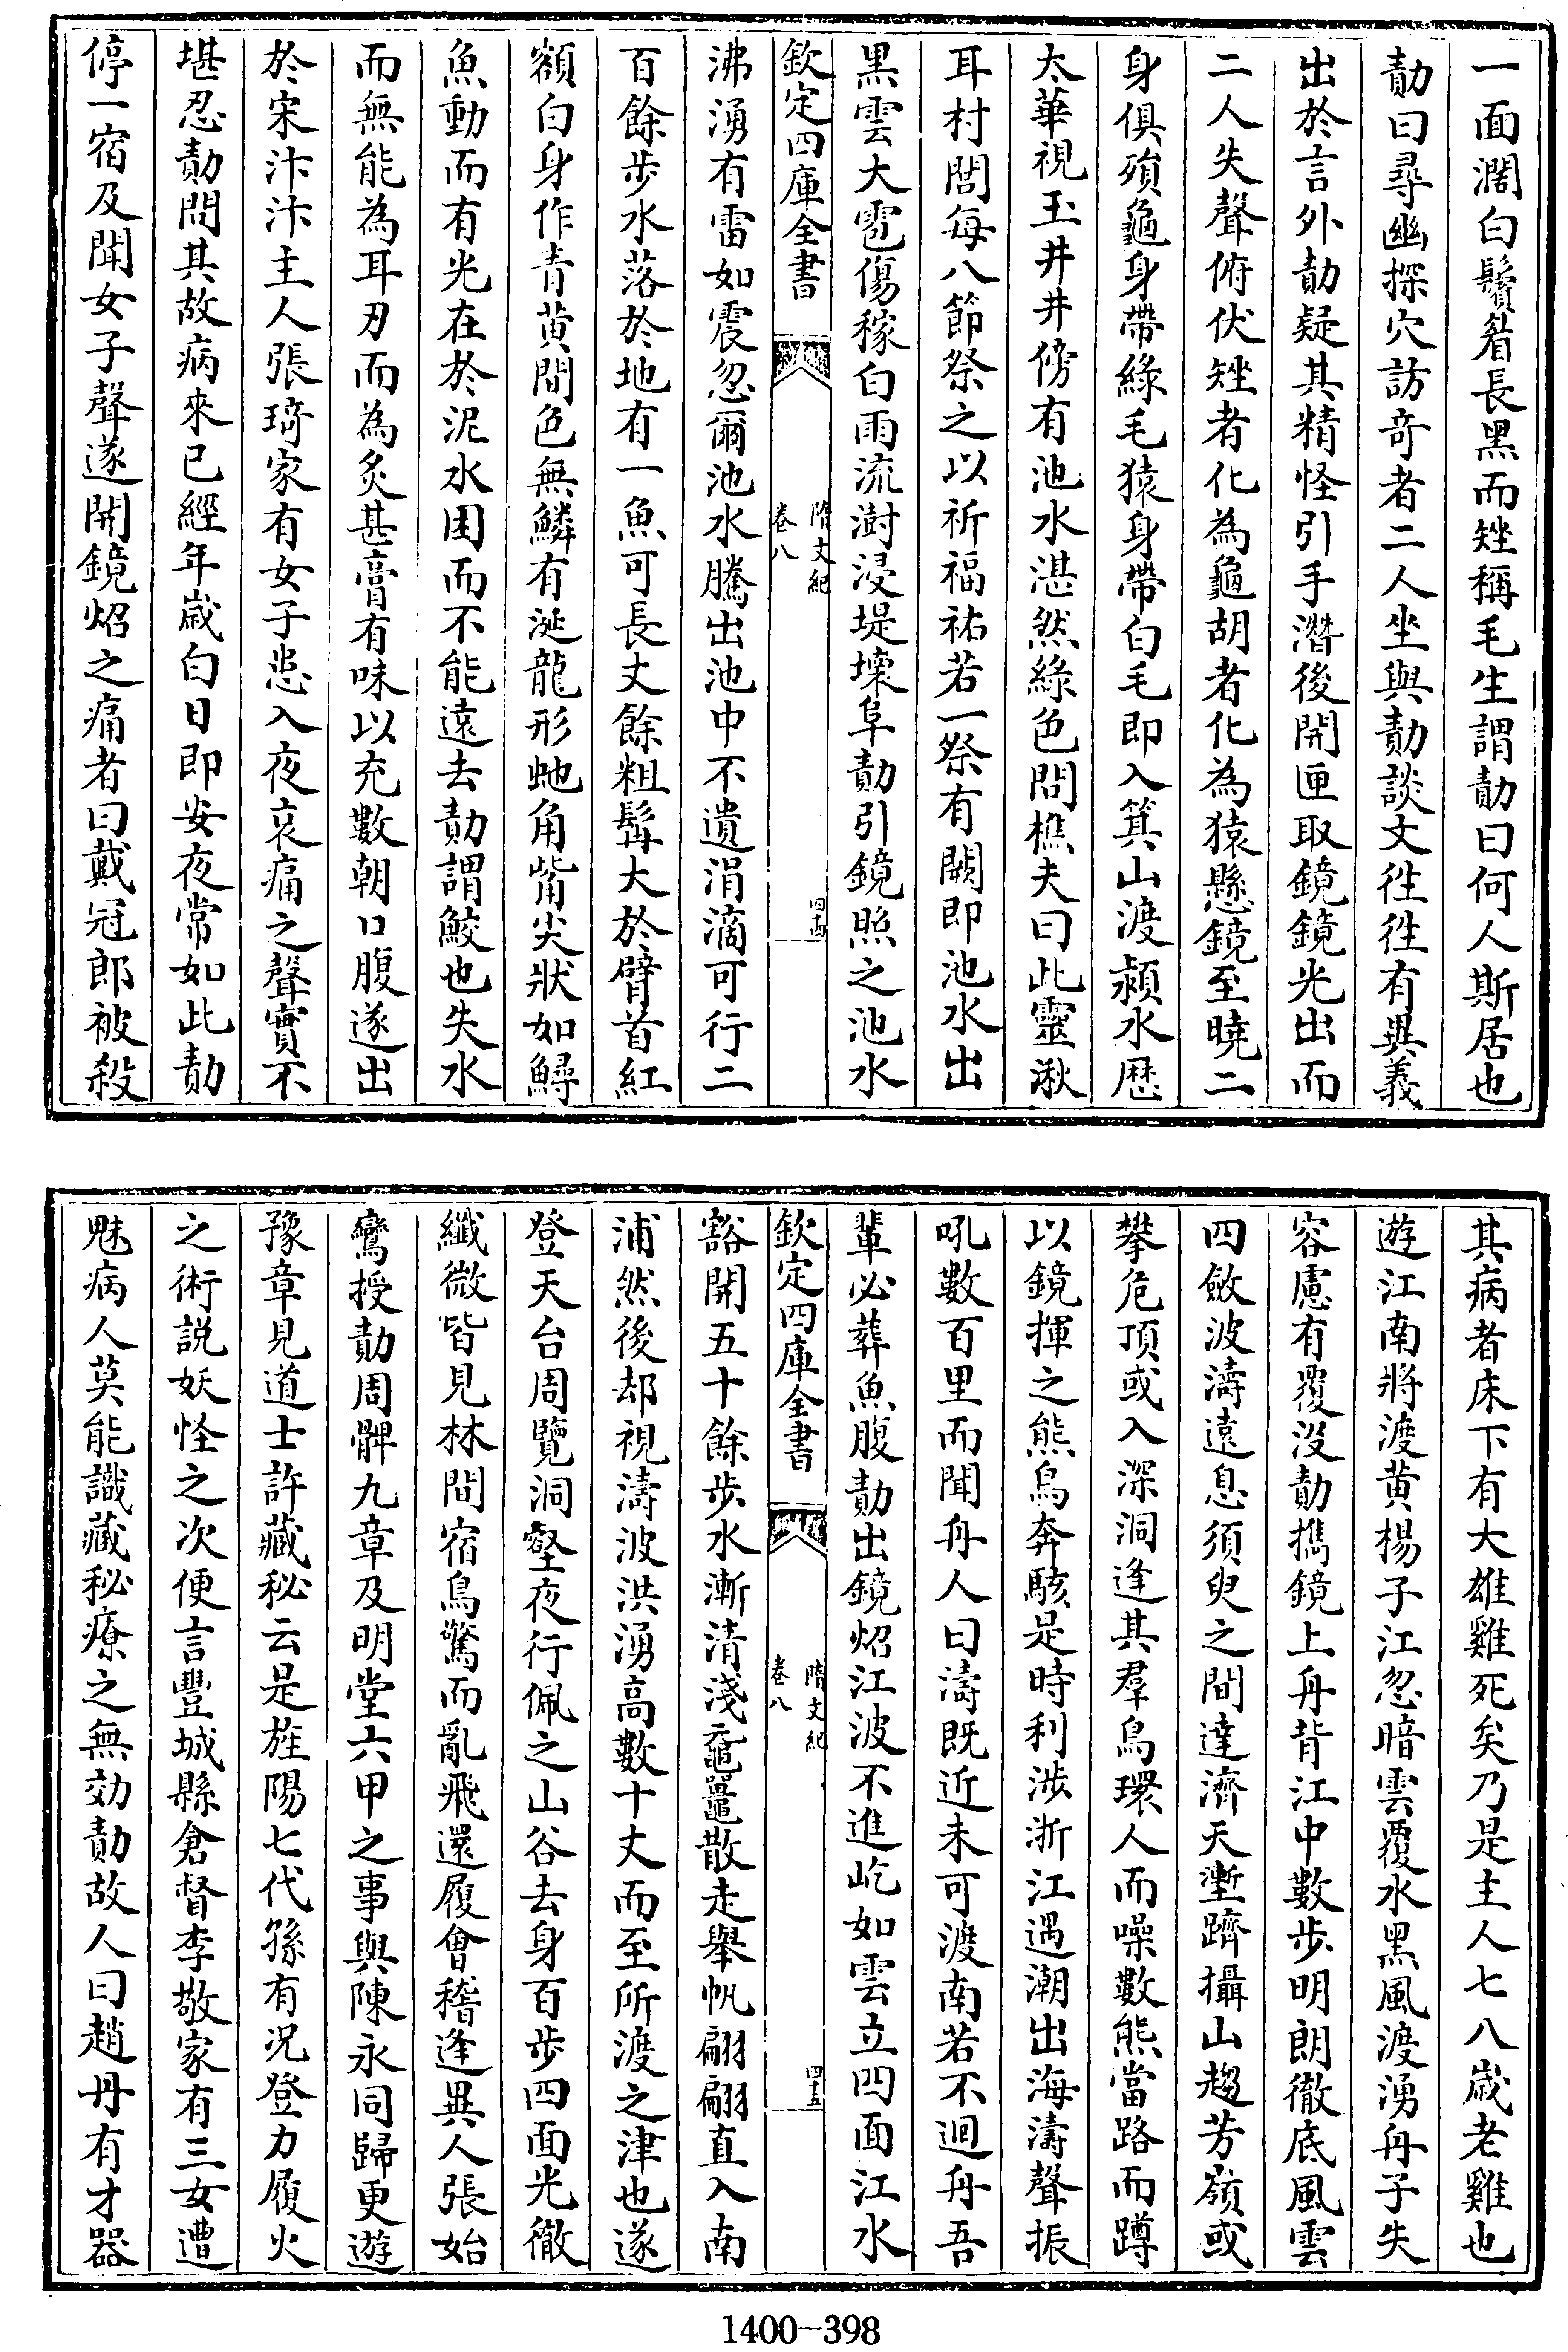 一面濶白鬚眉長黑而矬稱毛生謂勣曰何人斯居也
勣曰尋幽探穴訪竒者二人坐與勣談文徃徃有異義
出於言外勣疑其精怪引手潛後開匣取鏡鏡光出而
二人失聲俯伏矬者化為龜胡者化為猿懸鏡至曉二
身俱殞龜身帶綠毛猿身帶白毛即入箕山渡潁水歴
太華視玉井井傍有池水湛然綠色問樵夫曰此靈湫
耳村閭每八節祭之以祈福祐若一祭有闕即池水出
黑雲大雹傷稼白雨流澍浸堤壞阜勣引鏡照之池水
欽定四庫全書
隋文紀
卷八
四十四
沸湧有雷如震忽爾池水騰出池中不遺涓滴可行二
百餘步水落於地有一魚可長丈餘粗髯大於臂首紅
額白身作青黄間色無鱗有涎龍形虵角觜尖狀如鱘
魚動而有光在於泥水困而不能遠去勣謂鮫也失水
而無能為耳刃而為炙甚膏有味以充數朝口腹遂出
於宋汴汴主人張琦家有女子患入夜哀痛之聲實不
堪忍勣問其故病來已經年歲白日即安夜常如此勣
停一宿及聞女子聲遂開鏡炤之痛者曰戴冠郎被殺
其病者床下有大雄雞死矣乃是主人七八歲老雞也
遊江南將渡黄楊子江忽暗雲覆水黑風渡湧舟子失
容慮有覆沒勣攜鏡上舟背江中數步明朗徹底風雲
四斂波濤遠息須臾之間達濟天塹躋攝山趨芳嶺或
攀危頂或入深洞逢其羣鳥環人而噪數熊當路而蹲
以鏡揮之熊鳥奔駭是時利涉浙江遇潮出海濤聲振
吼數百里而聞舟人曰濤既近未可渡南若不迴舟吾
輩必葬魚腹勣出鏡炤江波不進屹如雲立四面江水
欽定四庫全書
隋文紀
卷八
四十五
豁開五十餘步水漸清淺黿鼉散走舉帆翩翩直入南
浦然後却視濤波洪湧高數十丈而至所渡之津也遂
登天台周覽洞壑夜行佩之山谷去身百步四面光徹
纖微皆見林間宿鳥驚而亂飛還履會稽逢異人張始
鸞授勣周髀九章及明堂六甲之事與陳永同歸更遊
豫章見道士許藏秘云是旌陽七代孫有况登刀履火
之術説妖怪之次便言豐城縣倉督李敬家有三女遭
魅病人莫能識藏秘療之無効勣故人曰趙丹有才器
1400-398